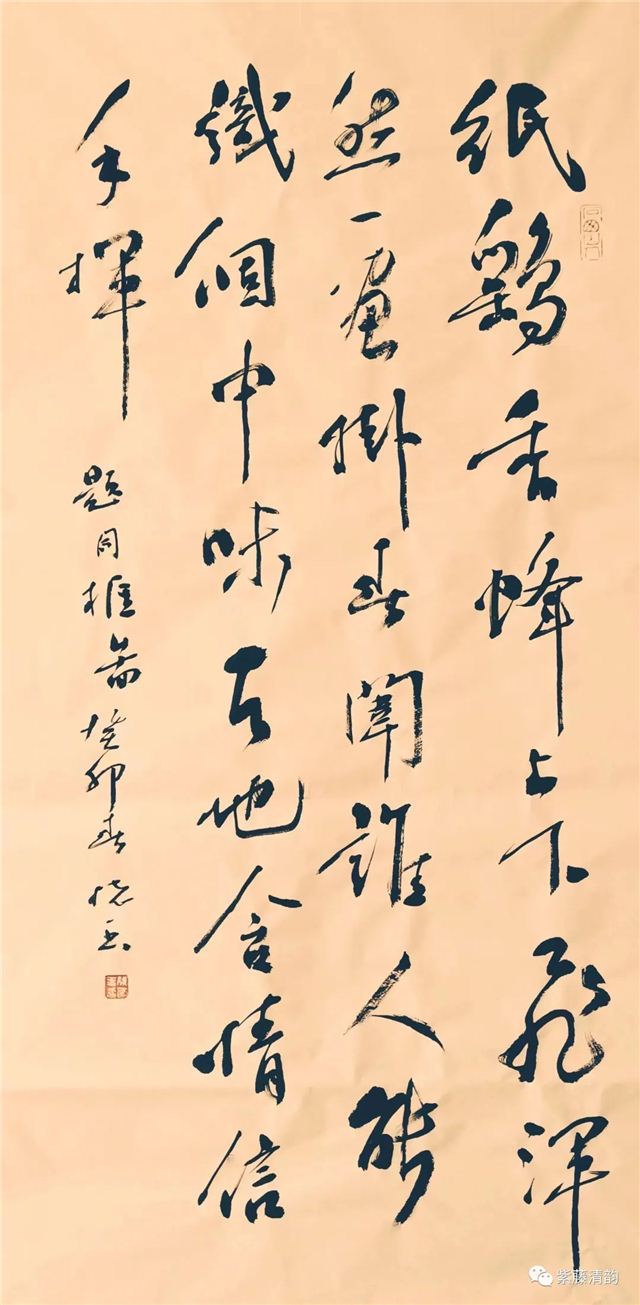 紙鷂香蜂上下飛渾
然一畫掛春闈誰人能
識個中味天地含情信
手揮
題同框圖癸卯春
紫藤清韵